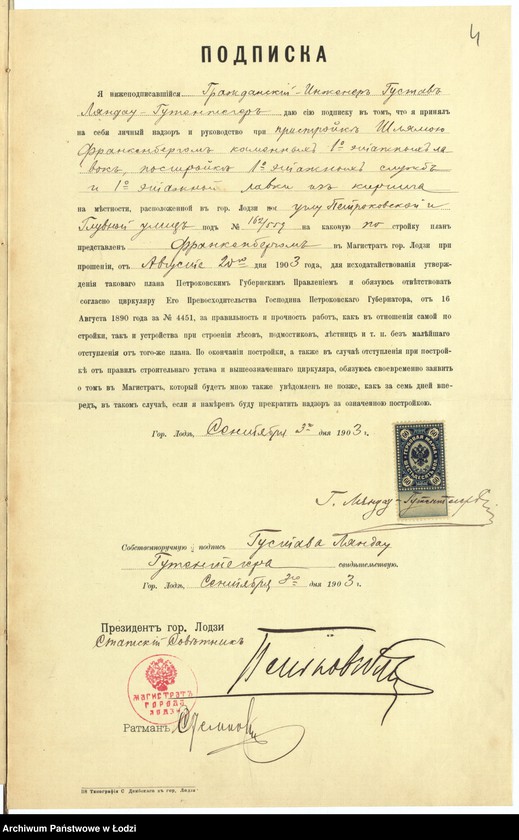 4
ПОДПИСКА
Я нижеподписавшійся Гражданскій-Инженеръ Густавъ
Ляндау-Гутентегеръ даю сію подписку въ томъ, что я принялъ
на себя личный надзоръ и руководство при пристройкѣ Шлямою
Франкенбергомъ каменныхъ 1о этажныхъ ла
вокъ, постройкѣ 1о этажныхъ службъ
и 1о этажной лавки изъ кирпича
на мѣстности, расположенной въ гор. Лодзи углу Петроковской и
Главной улицъ подъ № на каковую по стройку планъ
представленъ Франкенбергомъ въ Магистратъ гор. Лодзи при
прошеніи, отъ Августа 20го дня 1903 года, для исходатайствованія утверж-
денія таковаго плана Петроковскимъ Губернскимъ Правленіемъ и обязуюсь отвѣтствовать
согласно циркуляру Его Превосходительства Господина Петроковскаго Губернатора, отъ 16
Августа 1890 года за № 4451, за правильность и прочность работъ, какъ въ отношеніи самой по
стройки, такъ и устройства при строеніи лѣсовъ, подмостиковъ, лѣстницъ и т. п. безъ малѣйшаго
отступленія отъ того-же плана. По окончаніи постройки, а также въ случаѣ отступленія при построй-
кѣ отъ правилъ строительнаго устава и вышеозначеннаго циркуляра, обязуюсь своевременно заявить
о томъ въ Магистратъ, который будетъ мною также увѣдомленъ не позже, какъ за семь дней впе-
редъ, въ такомъ случаѣ, если я намѣренъ буду прекратить надзоръ за означенною постройкою.
Гор. Лодзь, Сентября 3го дня 1903 г.
Г. Ляндау-Гутентегеръ
Собственноручную подпись Густава Ляндау
Гутентегера свидѣтельствую.
Гор. Лодзь, Сентября 3го дня 1903 г.
Президентъ гор. Лодзи
Статскій Совѣтникъ
МАГИСТРАТЪ
ГОРОДА
ЛОДЗИ
Ратманъ,
Типографія С Дембскаго въ гор. Лодзи
Archiwum Państwowe w Łodzi